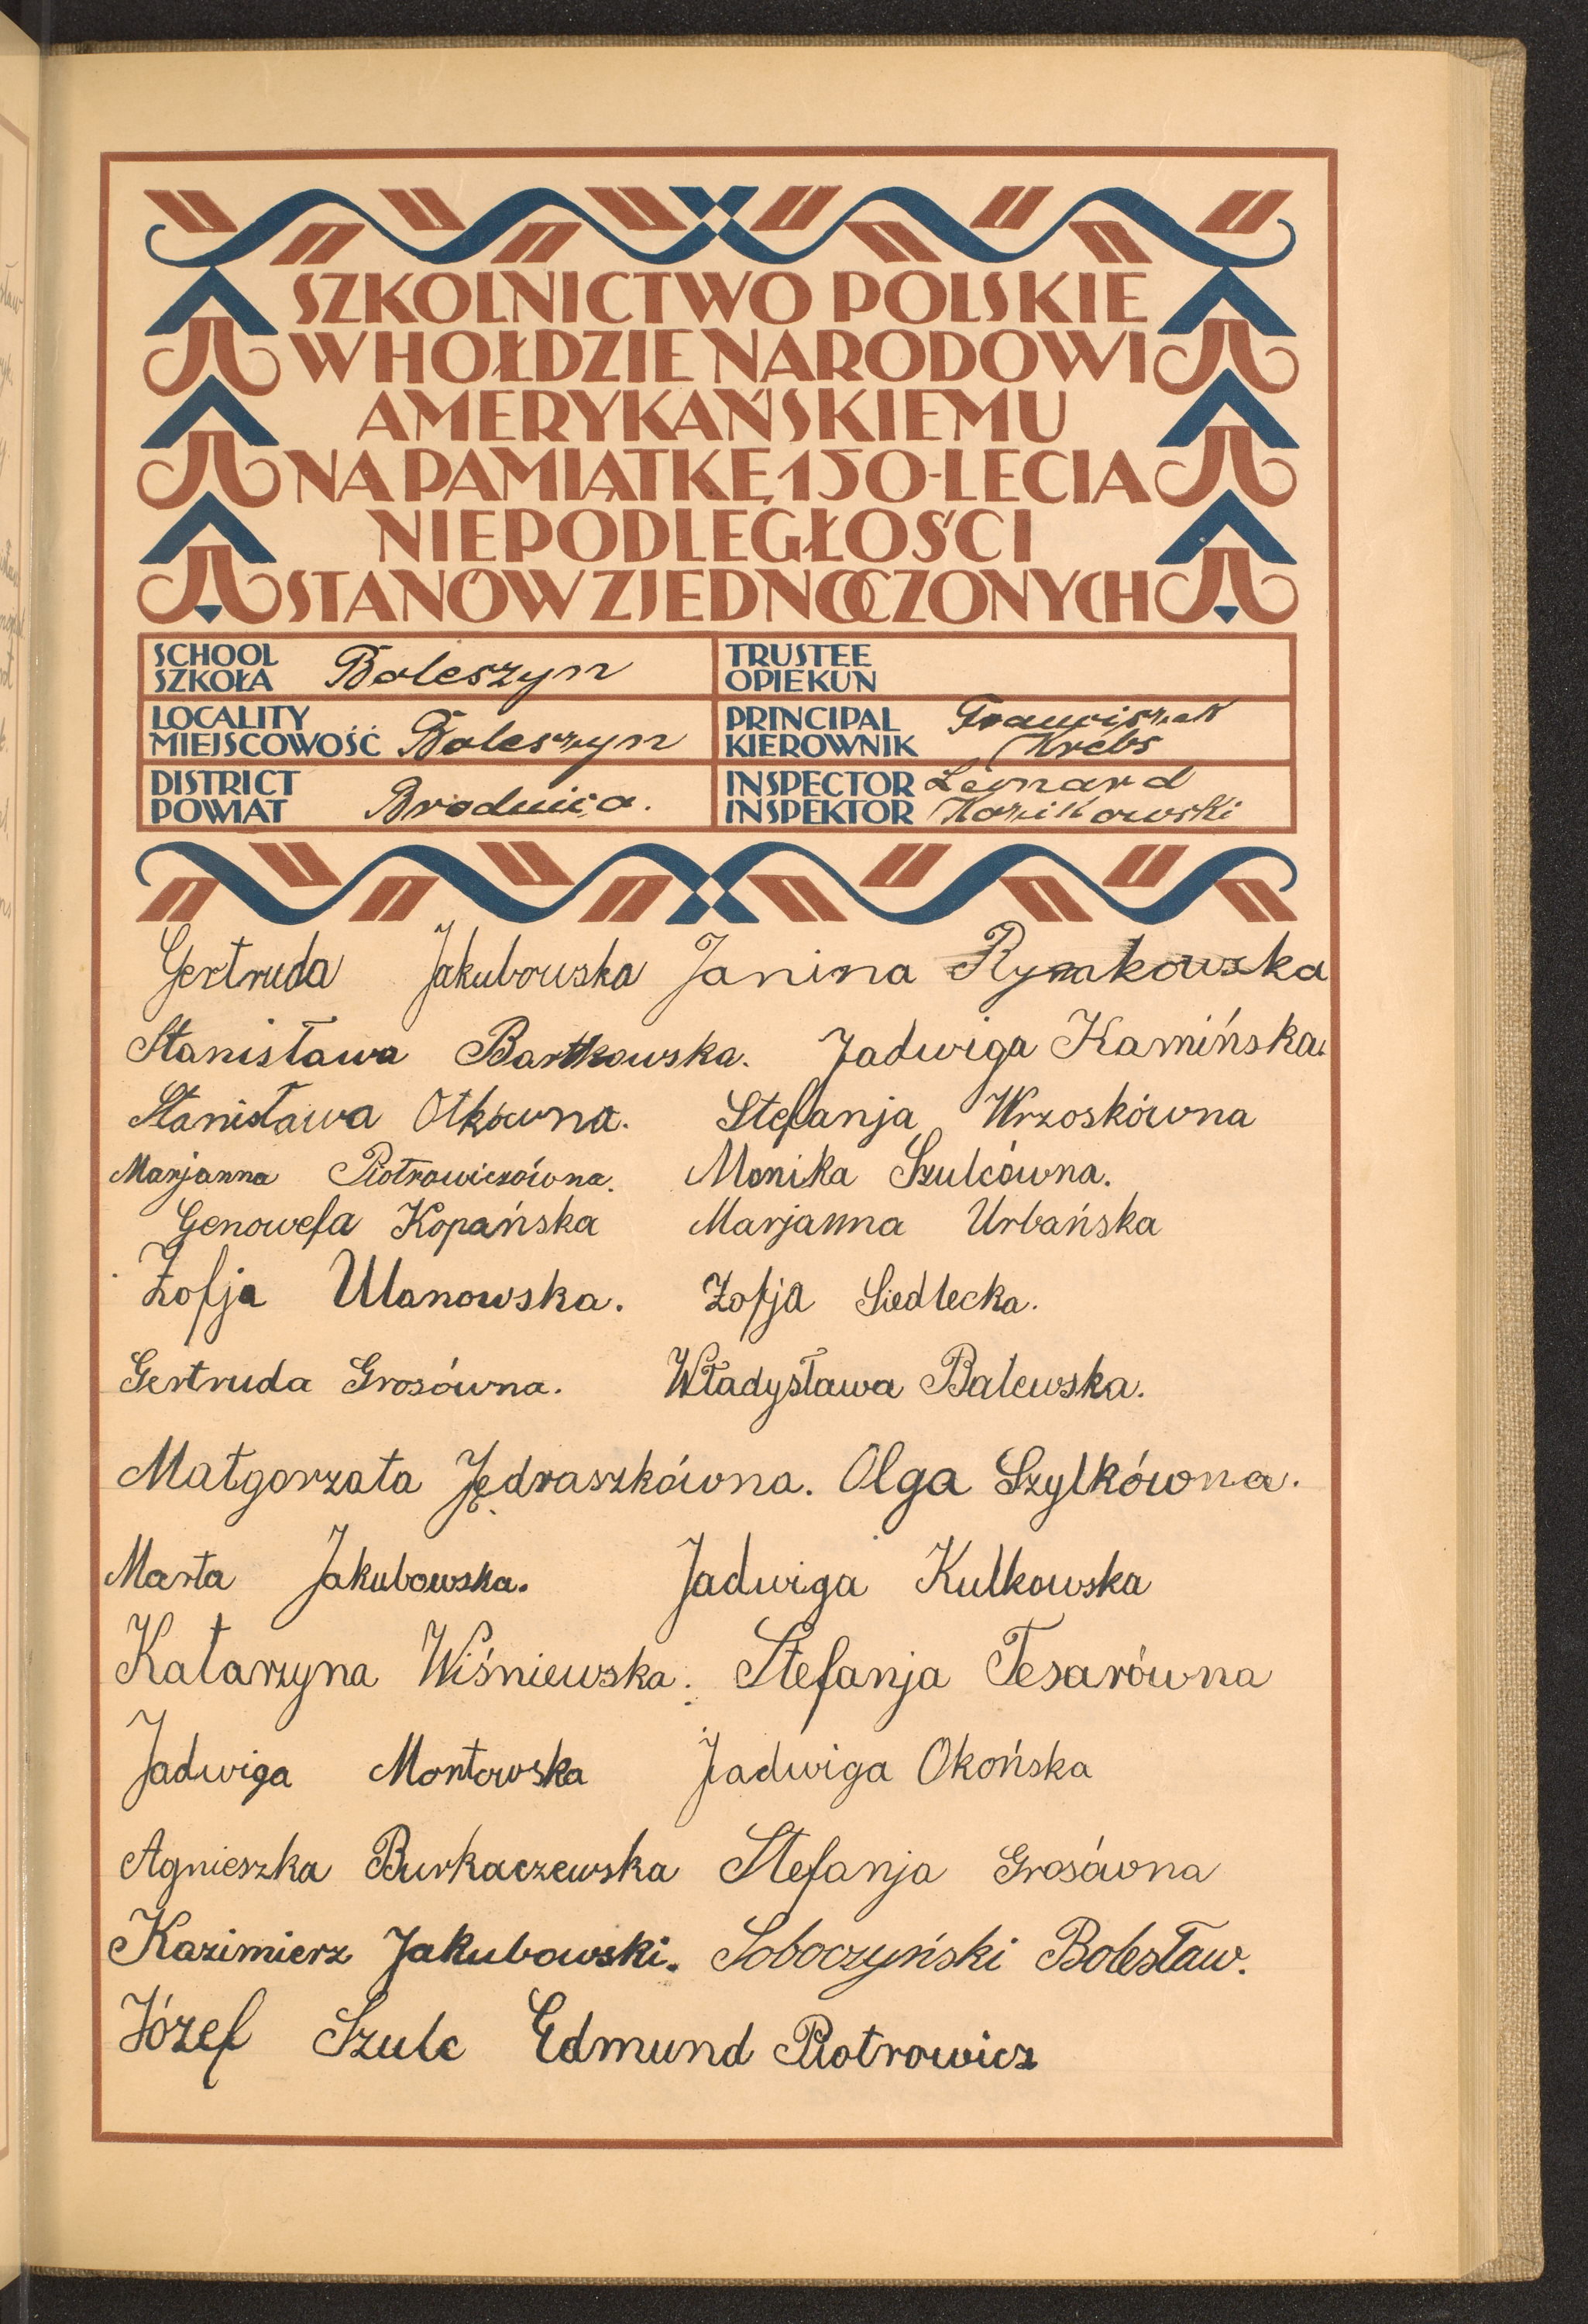 SZKOLNICTWO POLSKIE
W HOŁDZIE NARODOWI
AMERYKAŃSKIEMU
NA PAMIĄTKĘ 150-LECIA
NIEPODLEGŁOŚCI
STANÓW ZJEDNOCZONYCH
SCHOOL
SZKOŁA Boleszyn
TRUSTEE
OPIEKUN
LOCALITY
MIEJSCOWOŚĆ Boleszyn
PRINCIPAL Franciszek
KIEROWNIK Krebs
DISTRICT
POWIAT Brodnica.
INSPECTOR Leonard
INSPEKTOR Kozikowski
Gertruda Jakubowska Janina Rymkowska
Stanisława Bartkowska. Jadwiga Kamińska.
Stanisława Otkówna. Stefanja Wrzoskówna
Marjanna Piotrowiczówna. Monika Szulcówna.
Genowefa Kopańska Marjanna Urbańska
Zofja Ulanowska. Zofja Siedlecka.
Gertruda Grosówna. Władysława Balewska.
Małgorzata Jędraszkówna. Olga Szylkówna.
Marta Jakubowska. Jadwiga Kulkowska
Katarzyna Wiśniewska. Stefanja Tesarówna
Jadwiga Montowska Jadwiga Okońska
Agnieszka Burkaczewska Stefanja Grosówna
Kazimierz Jakubowski. Soboczyński Bolesław.
Józef Szulc Edmund Piotrowicz